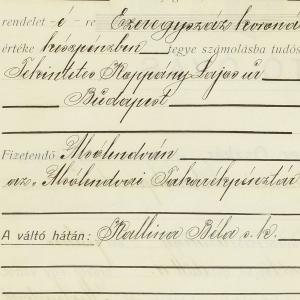 rendelet -é- re Ezeregyszáz korona
értéke készpénzben tegye számolásba tudós
Tekintetes Koppány Lajos úr
Budapest
Fizetendő Alsólendván
az Alsólendvai Takarékpénztár
A váltó hátán: Kallina Béla s.k.